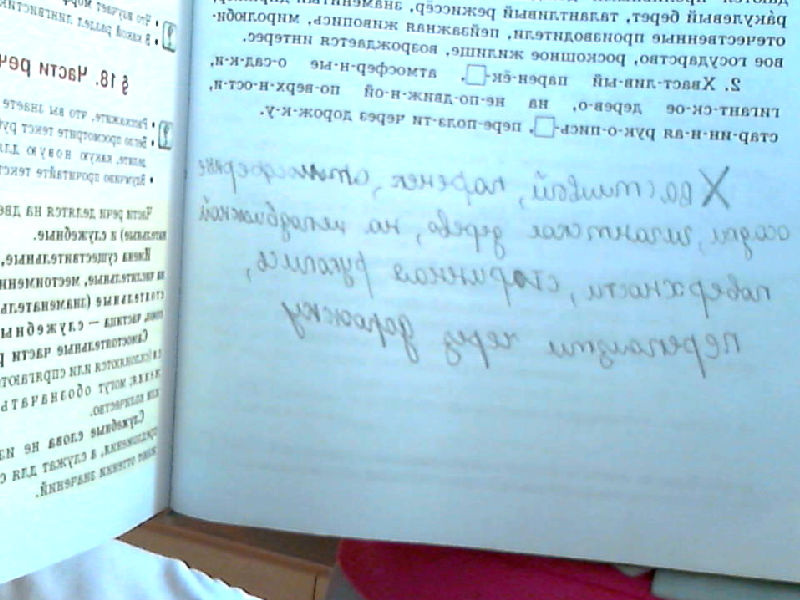 ракулевый берет, талантливый режиссёр, знаменитый
отечественные производители, пейзажная живопись, миролюби-
вое государство, роскошное жилище, возрождается интерес.
2. Хваст-лив-ый парен-ёк-□, атмосфер-н-ые о-сад-к-и,
гигант-ск-ое дерев-о, на не-по-движ-н-ой по-верх-н-ост-и,
стар-ин-н-ая рук-о-пись-□, пере-полз-ти через дорож-к-у.
Хвастливый, паренек, атмосферные
осадки, гигантское дерево, на неподвижной
поверхности, старинная рукопись,
переползти через дорожку
• Что изучает
• В какой раздел лингвистики
§ 18. Части речи
• Расскажите, что вы знаете
• Бегло просмотрите текст
делите, какую новую для
• Вдумчиво прочитайте текст
Части речи делятся на две
и служебные.
Имена существительные,
числительные, местоимения
(знаменательные
частица — служебные
Самостоятельные части
(склоняются или спрягаются
могут обозначать
или количество.
Служебные слова не
предложения, а служат для
оттенки значений.